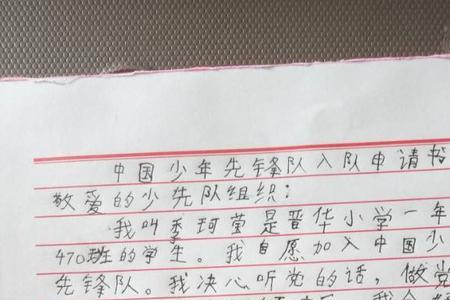 中国少年先锋队入队申请书
敬爱的少先队组织：
我叫季珂莹是晋华小学一年
470班的学生。我自愿加入中国少
先锋队。我决心听党的话，做党